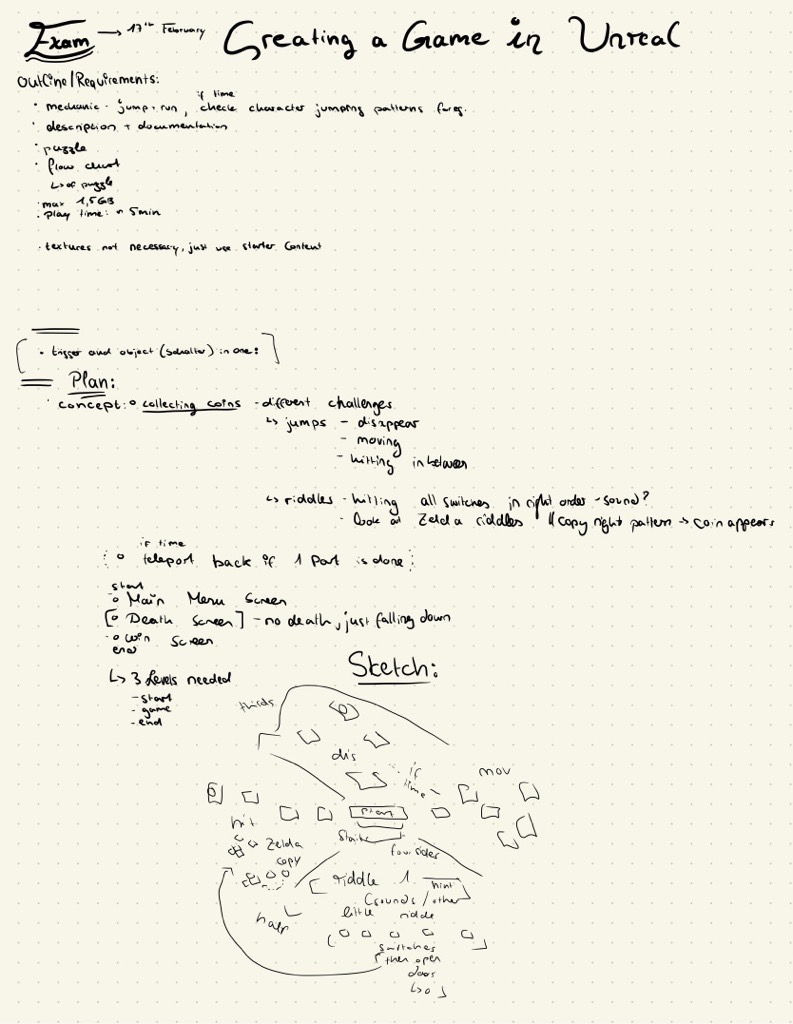 Exam → 17th February Creating a Game in Unreal
Outline/Requirements:
if time
• mechanic · jump + run, check character jumping patterns
• description + documentation
• puzzle
• flow chart
↳ of puzzle
• max 1,5GB
• play time: ~ 5min
• textures not necessary, just use starter Content
• trigger and object (Schalter) in one!
Plan:
concept: ° collecting coins - different challenges
↳ jumps - disappear
- moving
- hitting in between
↳ riddles - hitting all switches in right order - sound?
- look at Zelda riddles Copy right pattern → coin appears
if time
° teleport back if 1 Part is done
start
° Main Menu Screen
[° Death Screen] - no death, just falling down
° Win Screen
end
↳ 3 Levels needed
- start
- game
- end
Sketch:
thirds
dis
if time
mov
start
hit
Zelda
copy
four sides
riddle 1
hint
(sounds / other
little riddle
half
switches
then open
door